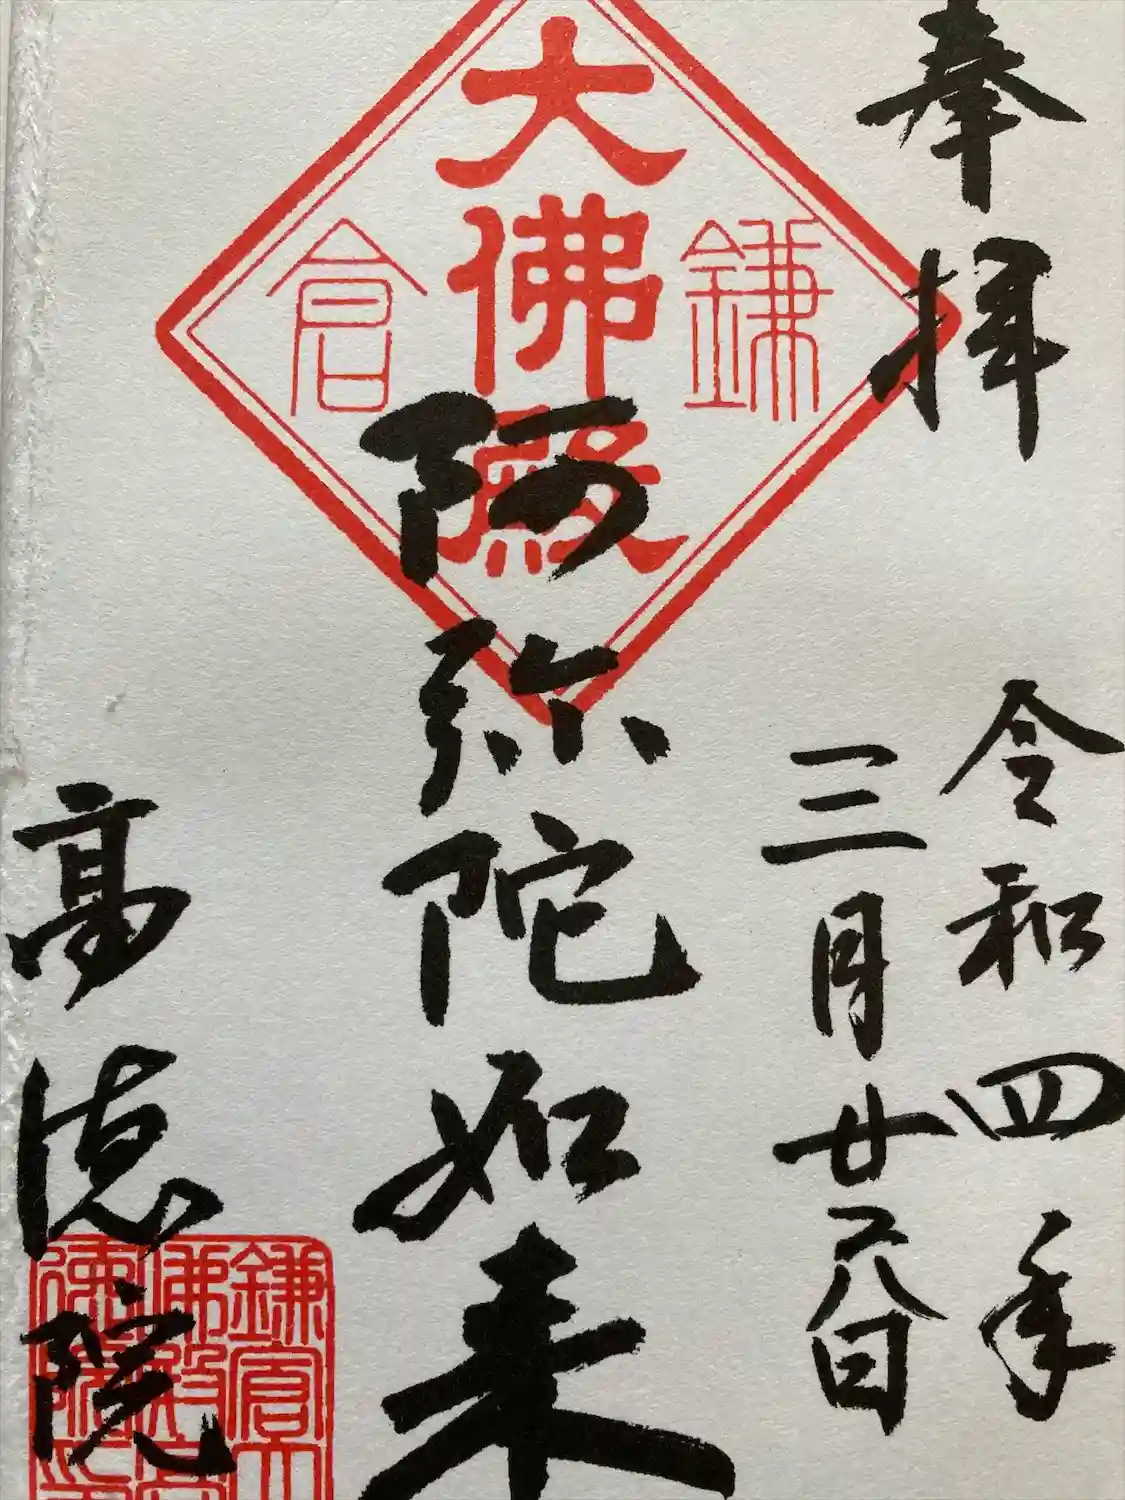 奉拝
令和四年
三月廿六日
鎌倉
大佛殿
阿弥陀如来
高徳院
鎌倉大
佛殿高
徳院印